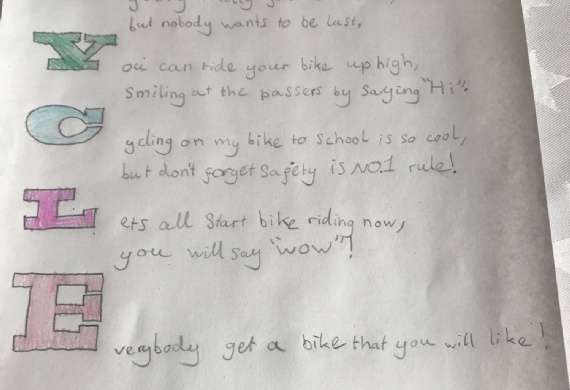 but nobody wants to be last,
You can ride your bike up high,
Smiling at the passers by saying "Hi".
Cycling on my bike to School is so cool,
but don't forget Safety is NO.1 rule!
Lets all Start bike riding now,
you will say "wow"!
Everybody get a bike that you will like!